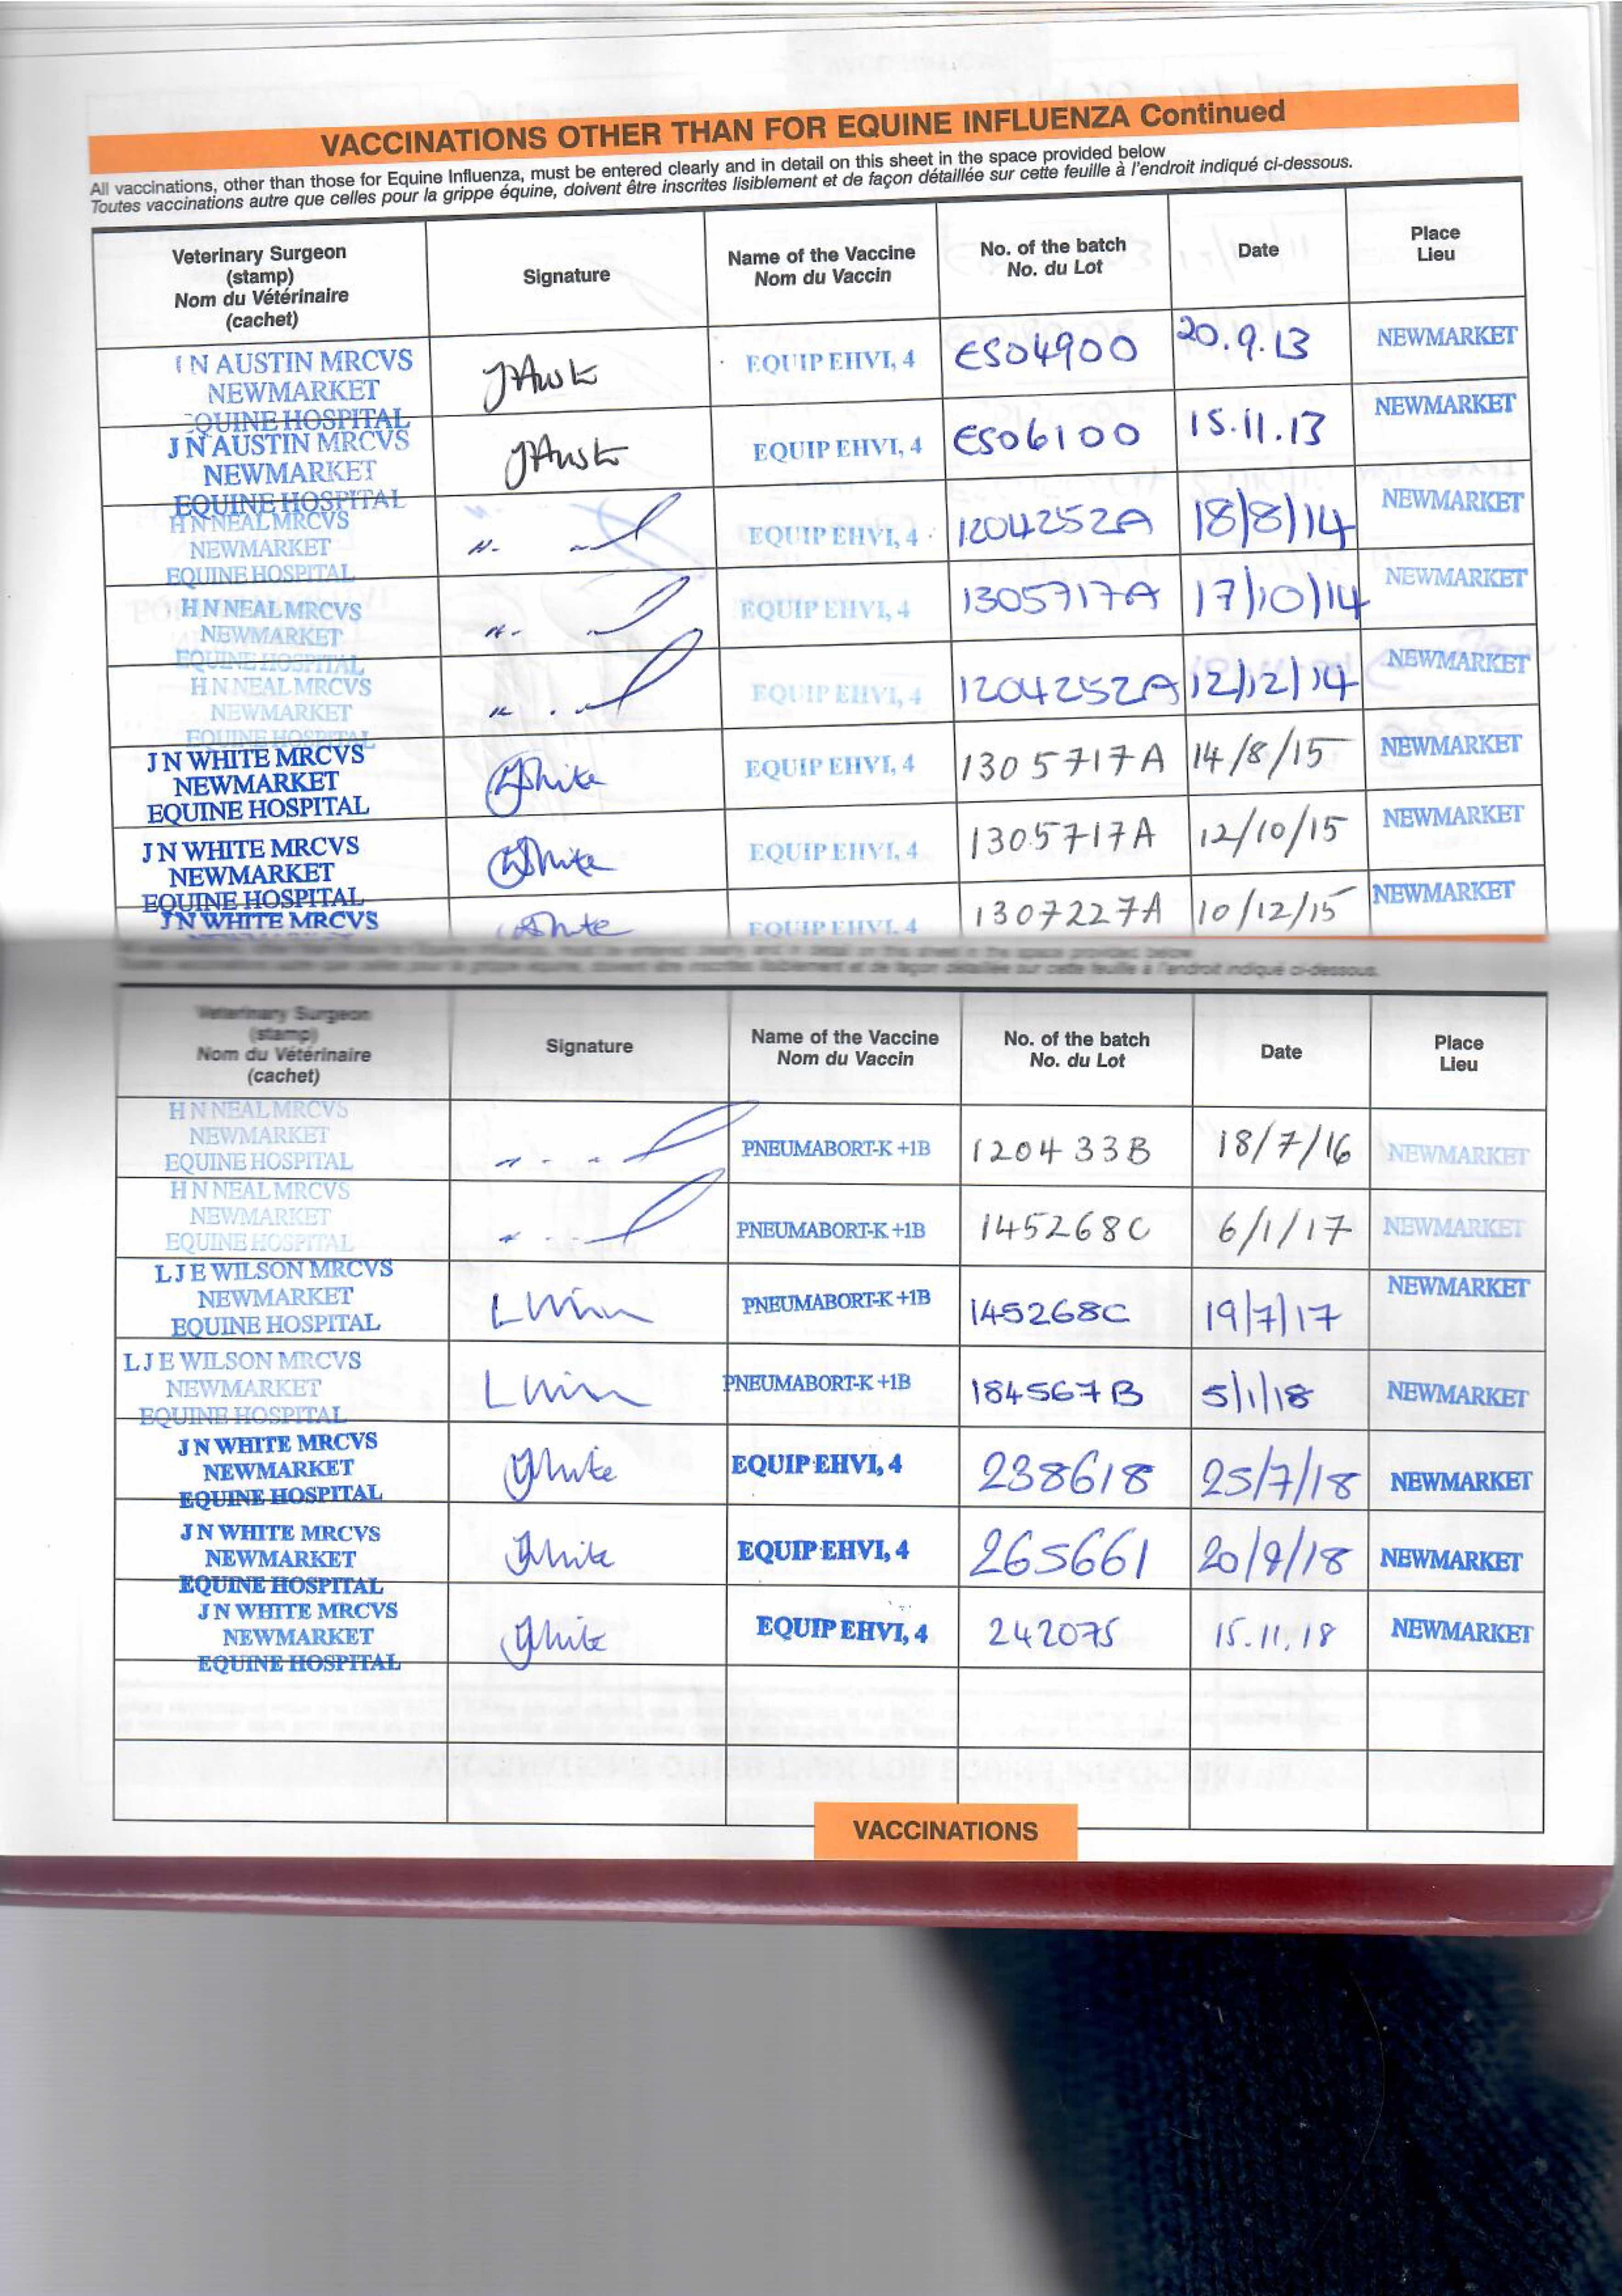 VACCINATIONS OTHER THAN FOR EQUINE INFLUENZA Continued
All vaccinations, other than those for Equine Influenza, must be entered clearly and in detail on this sheet in the space provided below
Toutes vaccinations autre que celles pour la grippe équine, doivent être inscrites lisiblement et de façon détaillée sur cette feuille à l'endroit indiqué ci-dessous.
Veterinary Surgeon
(stamp)
Nom du Vétérinaire
(cachet)
Signature
Name of the Vaccine
Nom du Vaccin
No. of the batch
No. du Lot
Date
Place
Lieu
N AUSTIN MRCVS
NEWMARKET
EQUINE HOSPITAL
JAust
EQUIP EHVI, 4
ES04900
20.9.13
NEWMARKET
J N AUSTIN MRCVS
NEWMARKET
EQUINE HOSPITAL
JAust
EQUIP EHVI, 4
ES06100
15.11.13
NEWMARKET
H N NEAL MRCVS
NEWMARKET
EQUINE HOSPITAL
EQUIP EHVI, 4
1204252A
18/8/14
NEWMARKET
H N NEAL MRCVS
NEWMARKET
EQUINE HOSPITAL
EQUIP EHVI, 4
1305717A
17/10/14
NEWMARKET
H N NEAL MRCVS
NEWMARKET
EQUINE HOSPITAL
EQUIP EHVI, 4
1204252A
12/12/14
NEWMARKET
J N WHITE MRCVS
NEWMARKET
EQUINE HOSPITAL
JWhite
EQUIP EHVI, 4
1305717A
14/8/15
NEWMARKET
J N WHITE MRCVS
NEWMARKET
EQUINE HOSPITAL
JWhite
EQUIP EHVI, 4
1305717A
12/10/15
NEWMARKET
J N WHITE MRCVS
JWhite
EQUIP EHVI, 4
1307227A
10/12/15
NEWMARKET
Toutes vaccinations autre que celles pour la grippe équine, doivent être inscrites lisiblement et de façon détaillée sur cette feuille à l'endroit indiqué ci-dessous.
Veterinary Surgeon
(stamp)
Nom du Vétérinaire
(cachet)
Signature
Name of the Vaccine
Nom du Vaccin
No. of the batch
No. du Lot
Date
Place
Lieu
H N NEAL MRCVS
NEWMARKET
EQUINE HOSPITAL
PNEUMABORT-K +1B
120433B
18/7/16
NEWMARKET
H N NEAL MRCVS
NEWMARKET
EQUINE HOSPITAL
PNEUMABORT-K +1B
145268C
6/1/17
NEWMARKET
L J E WILSON MRCVS
NEWMARKET
EQUINE HOSPITAL
PNEUMABORT-K +1B
145268C
19/7/17
NEWMARKET
L J E WILSON MRCVS
NEWMARKET
EQUINE HOSPITAL
PNEUMABORT-K +1B
184567B
5/1/18
NEWMARKET
J N WHITE MRCVS
NEWMARKET
EQUINE HOSPITAL
JWhite
EQUIP EHVI, 4
238618
25/7/18
NEWMARKET
J N WHITE MRCVS
NEWMARKET
EQUINE HOSPITAL
JWhite
EQUIP EHVI, 4
265661
20/9/18
NEWMARKET
J N WHITE MRCVS
NEWMARKET
EQUINE HOSPITAL
JWhite
EQUIP EHVI, 4
242075
15.11.18
NEWMARKET
VACCINATIONS